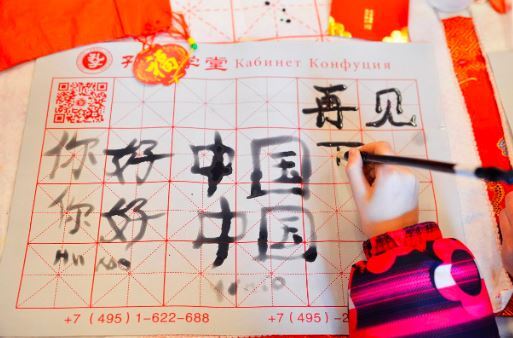 孔子学堂 Кабинет Конфуция
再见
你好 中国
你好 中国
+7 (495) 1-622-688
+7 (495)